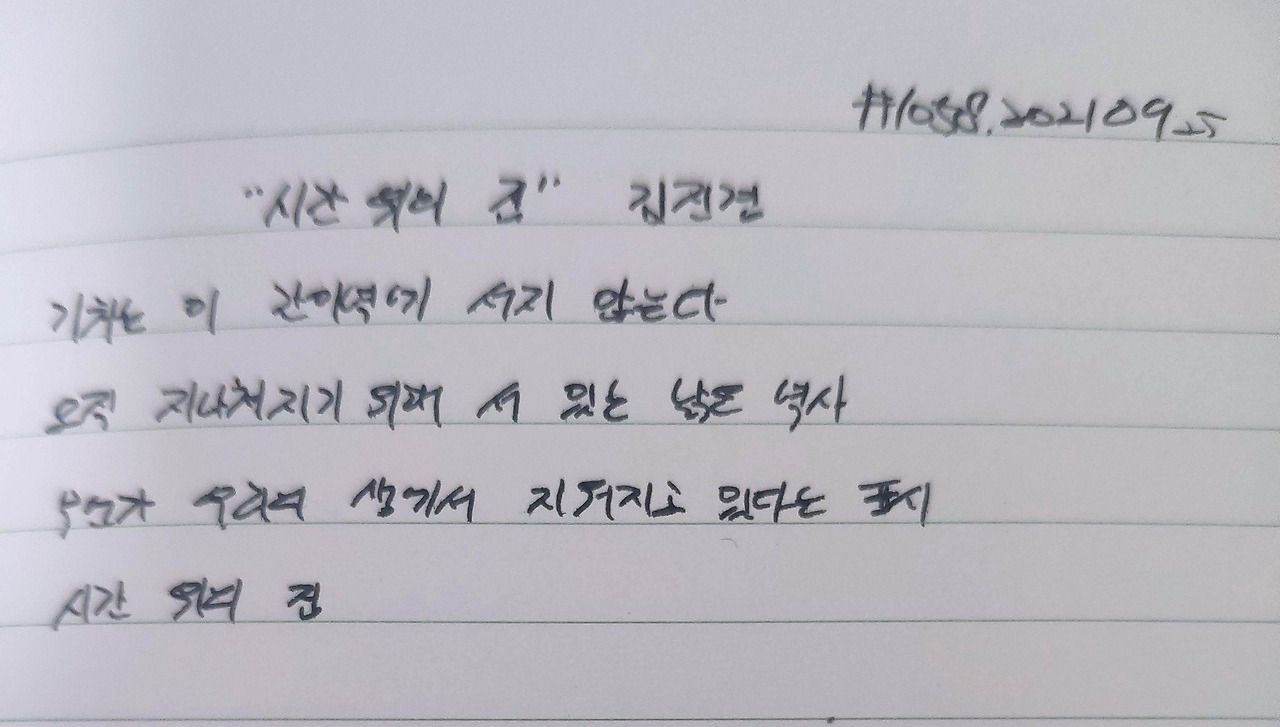 #1058. 20210925
"시간 위의 집" 김진경
기차는 이 간이역에 서지 않는다
오직 지나쳐지기 위해 서 있는 낡은 역사
누군가 우리의 생에서 지워지고 있다는 표시
시간 위의 집